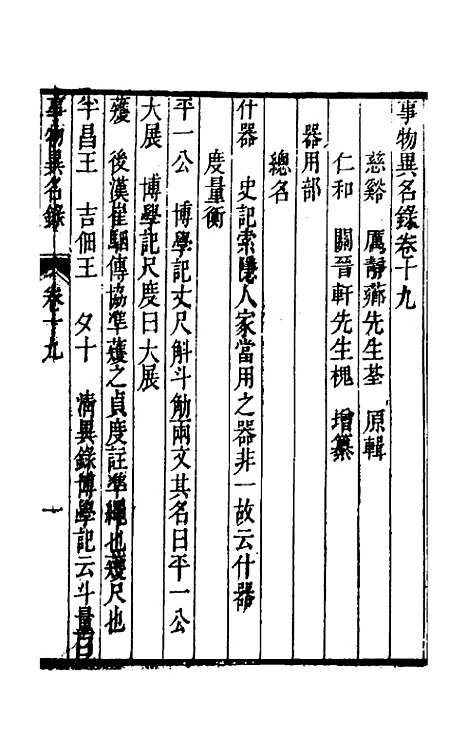 事物異名錄卷十九
慈谿　厲靜薌先生荃　原輯
仁和　關晉軒先生槐　增纂
器用部
總名
什器　史記索隱人家當用之器非一故云什器
度量衡
平一公　博學記丈尺斛斗觔兩文其名曰平一公
大展　博學記尺度曰大展
蒦　後漢崔駰傳協準蒦之貞度註準繩也蒦尺也
半昌王　吉佃王　夕十　淸異錄博學記云斗量曰
事物異名錄　卷十九　一